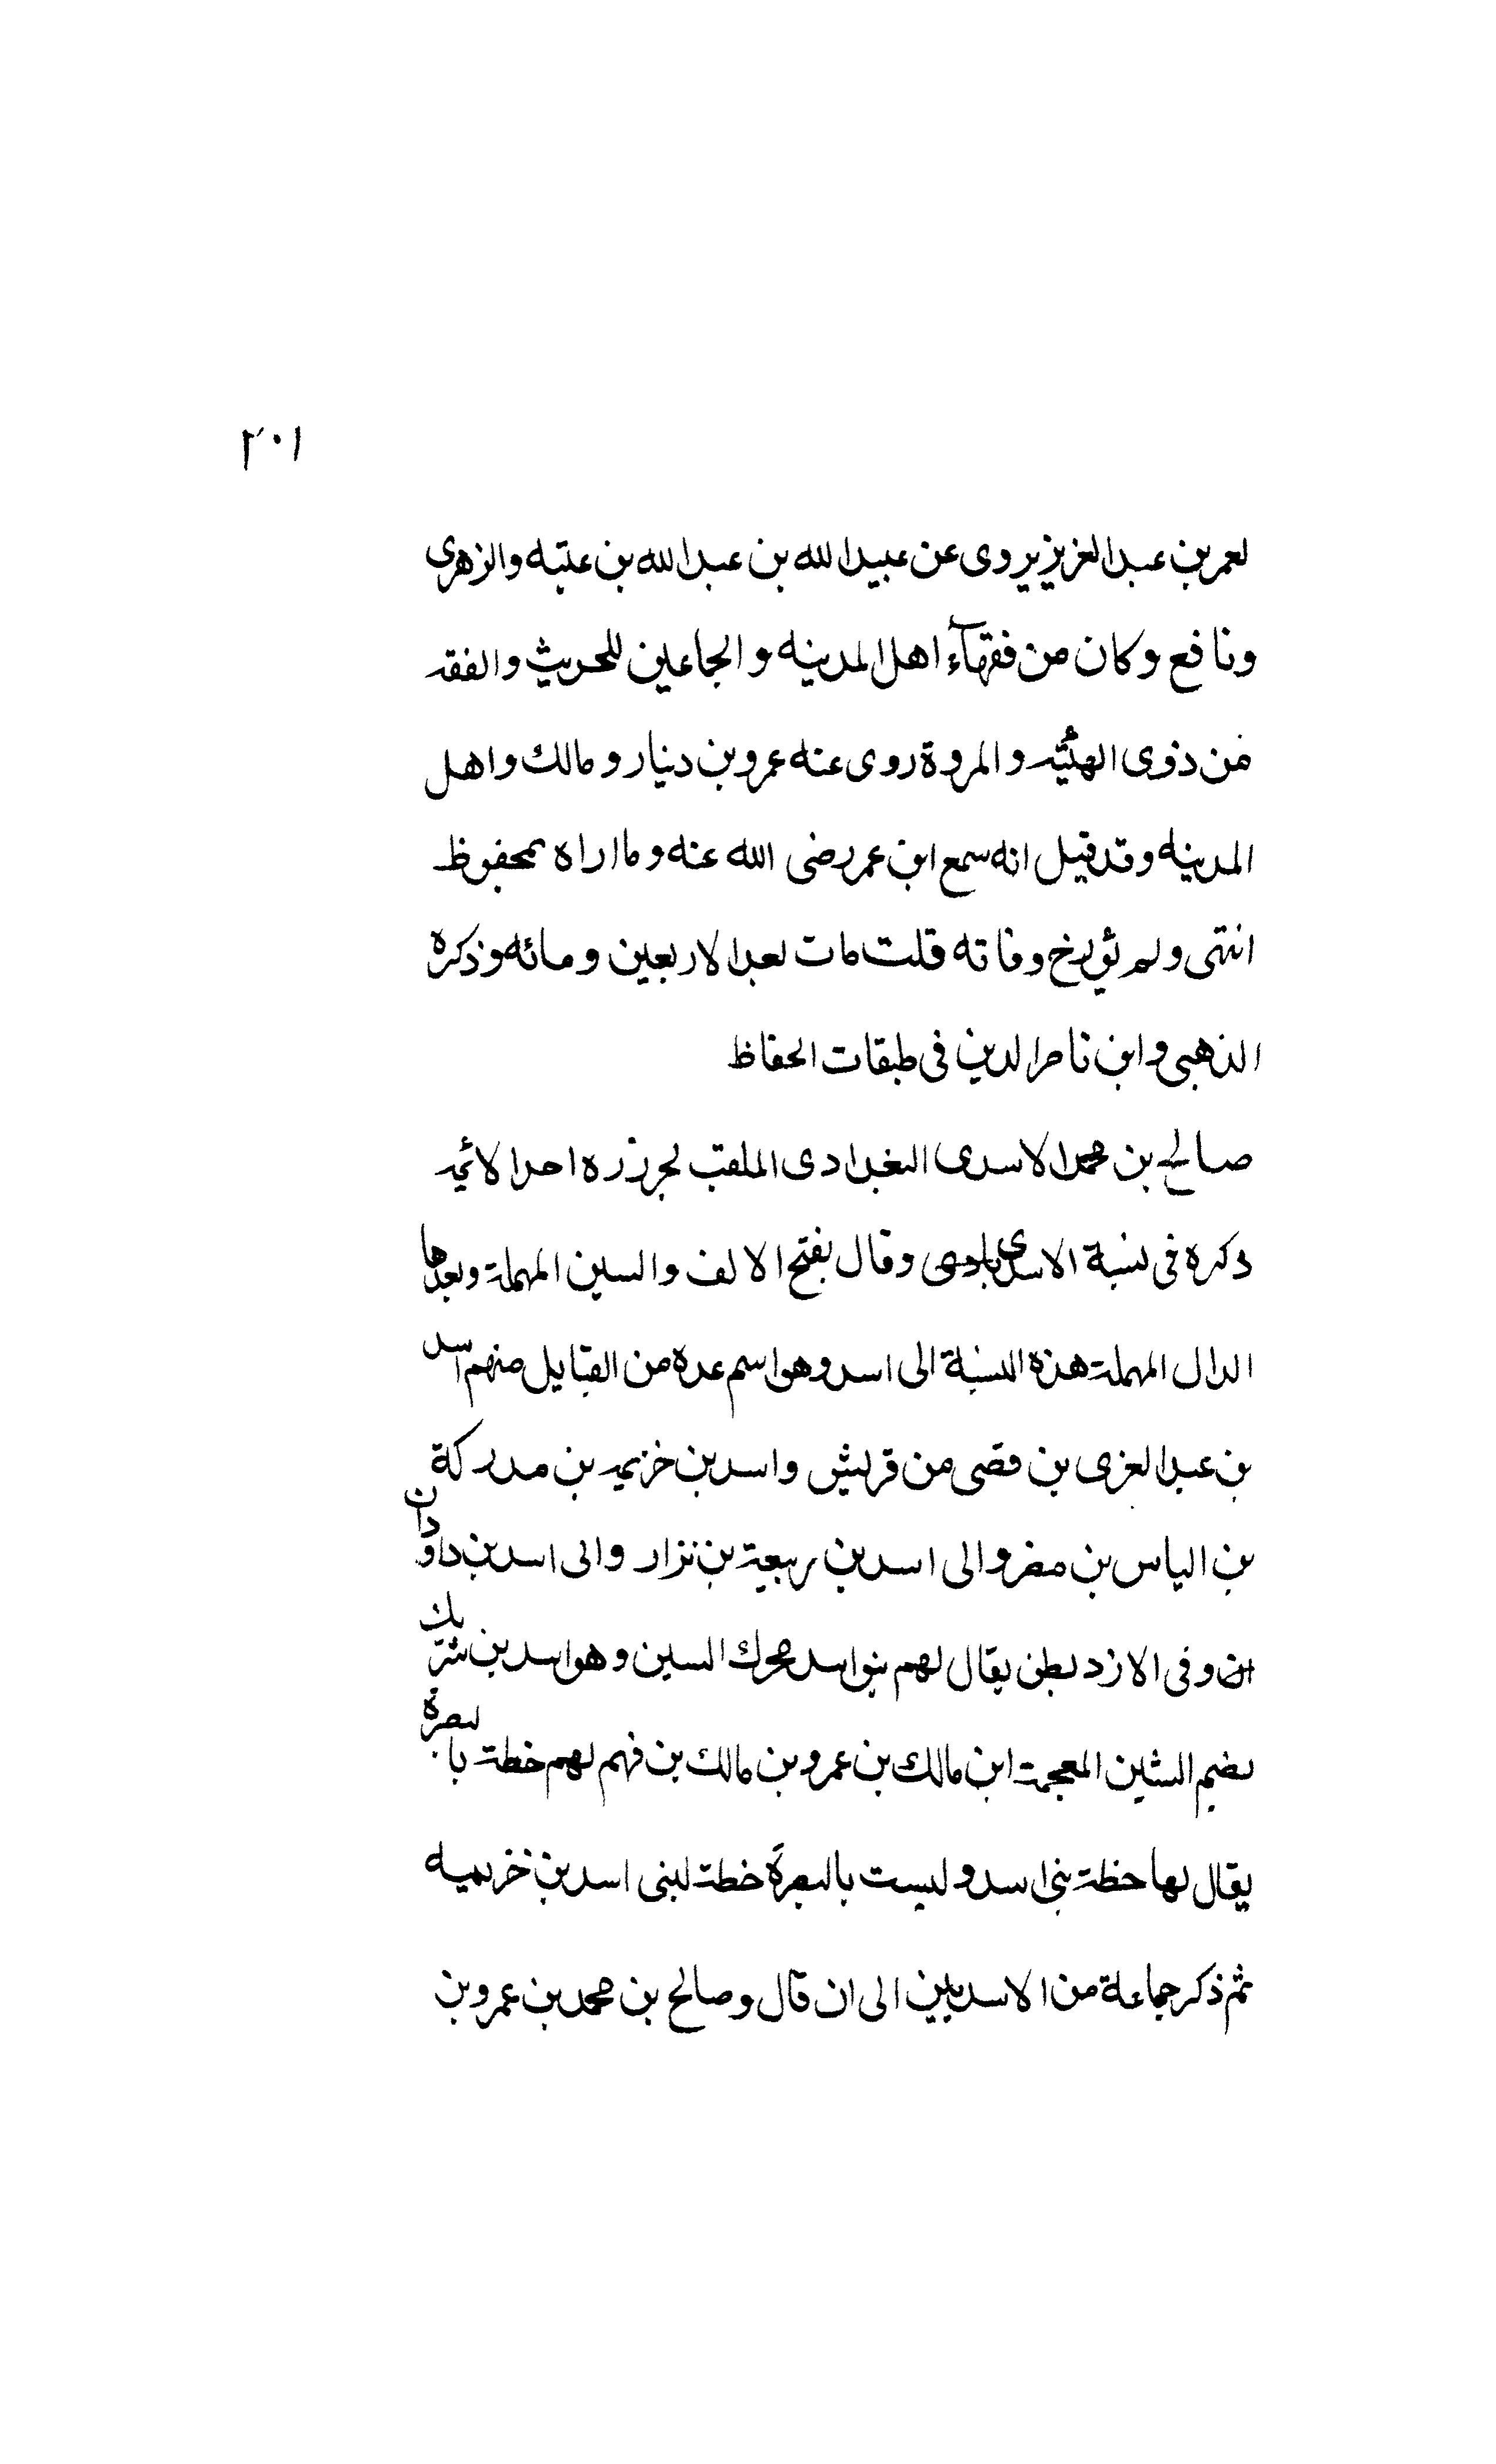 ١٠٢
لعمر بن عبد العزيز يروى عن عبيد الله بن عبد الله بن عتبه والزهرى
ونافع وكان من فقهآء اهل المدينه والجامعين للحديث والفقه
من ذوى الهئيه والمروة روى عنه عمرو بن دينار ومالك واهل
المدينه وقد قيل انه سمع ابن عمر رضى الله عنه وما اراه بمحفوظ
انتهى ولم يؤرخ وفاته قلت مات بعد الاربعين ومائه وذكره
الذهبى وابن ناصر الدين فى طبقات الحفاظ
صالح بن محمد الاسدى البغدادى الملقب لجرزره احد الائمه
ذكره فى نسبة الاسدى وقال بفتح الالف والسين المهملة وبعدها
الدال المهملة هذه النسبة الى اسد وهو اسم عده من القبايل منهم اسد
بن عبد العزى بن قصى من قريش واسد بن خزيمه بن مدركة
بن الياس بن مضر والى اسد بن ربيعة بن نزار والى اسد بن داودان
ان وفى الازد بطن يقال لهم بنو اسد محرك السين وهو اسد بن شريك
بضم الشين المعجمة ابن مالك بن عمرو بن مالك بن فهم لهم خطة بالبصرة
يقال لها خطة بنى اسد وليست بالبصرة خطة لبنى اسد بن خزيميه
ثم ذكر جماعة من الاسديين الى ان قال وصالح بن محمد بن عمرو بن